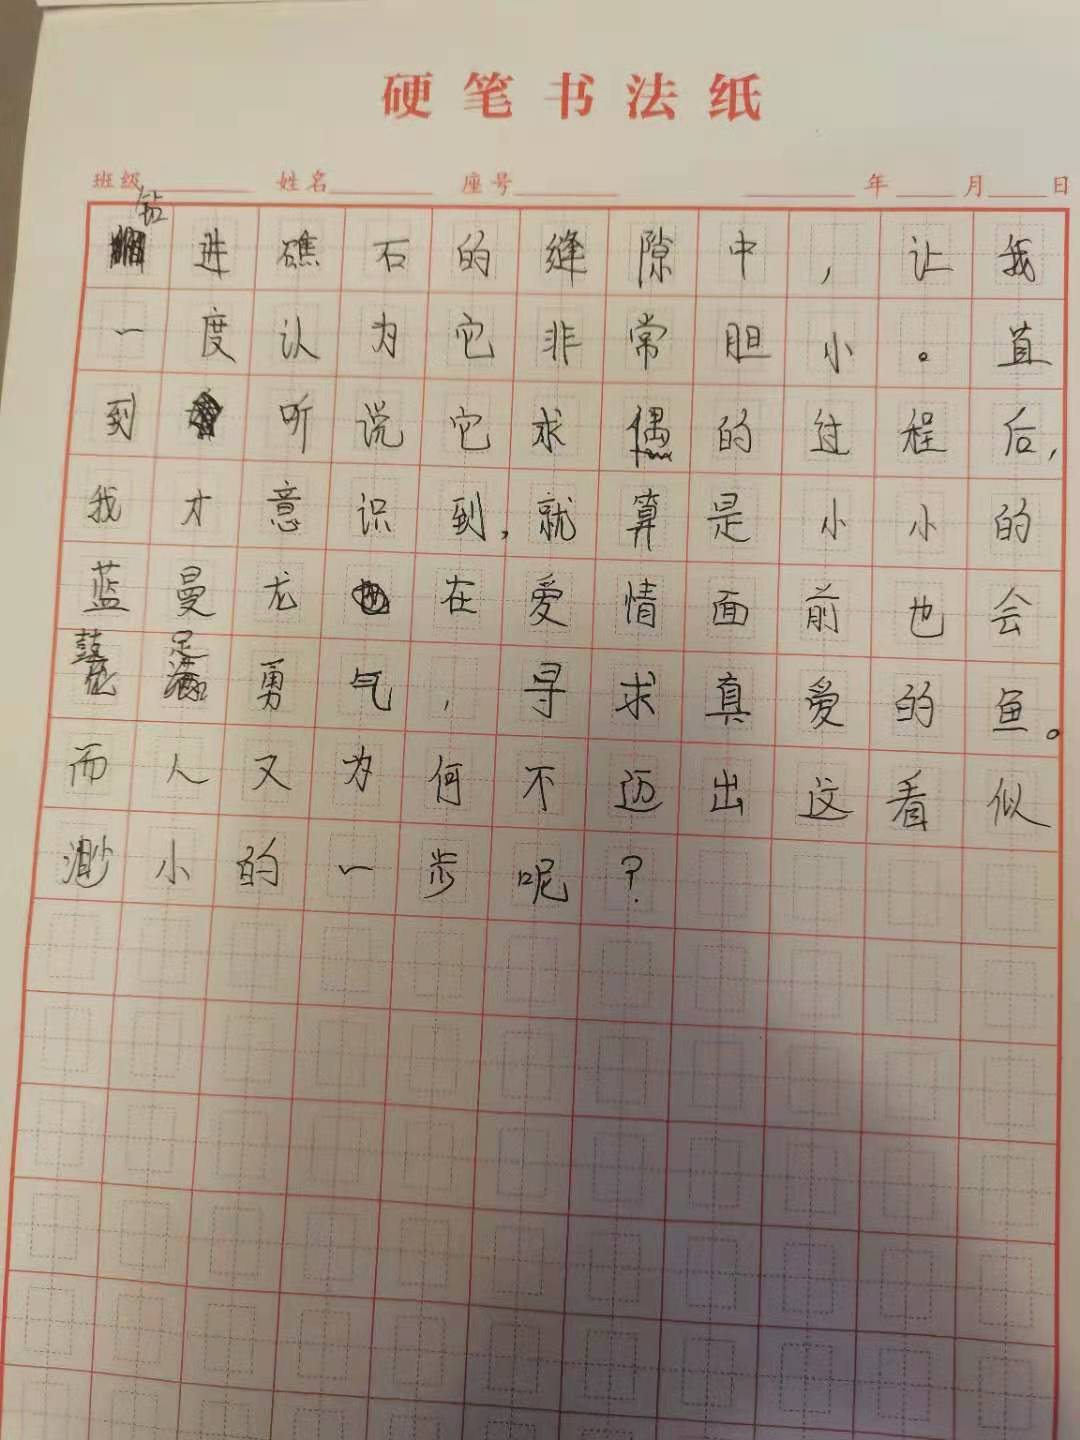 硬笔书法纸
班级 姓名 座号 年 月 日
钻进礁石的缝隙中，让我
一度认为它非常胆小。直
到听说它求偶的过程后，
我才意识到，就算是小小的
蓝曼龙在爱情面前也会
鼓足勇气，寻求真爱的鱼。
而人又为何不迈出这看似
渺小的一步呢？